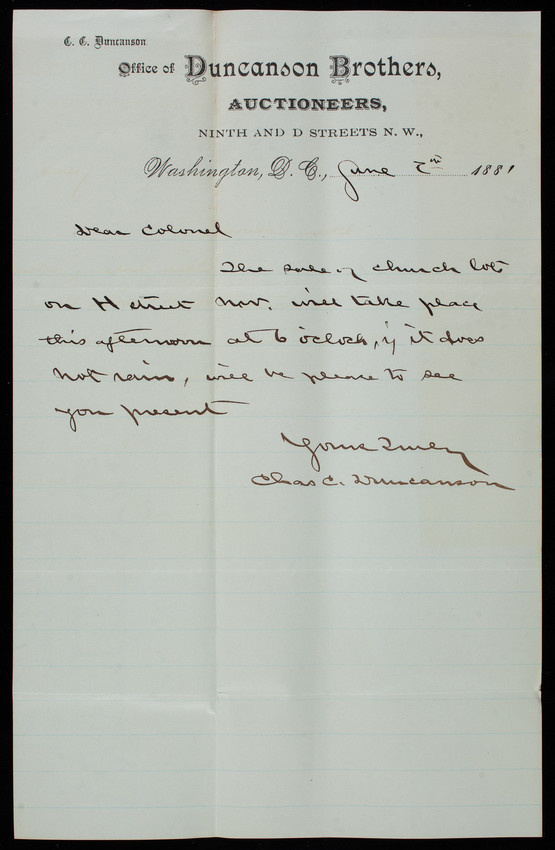 C. C. Duncanson
Office of Duncanson Brothers,
AUCTIONEERS,
NINTH AND D STREETS N. W.,
Washington, D. C., June 2nd 1881
Dear Colonel
The sale of church lots
on H street N.W. will take place
this afternoon at 6 o'clock, if it does
not rain, will be please to see
you present
Yours Truly
Chas C. Duncanson